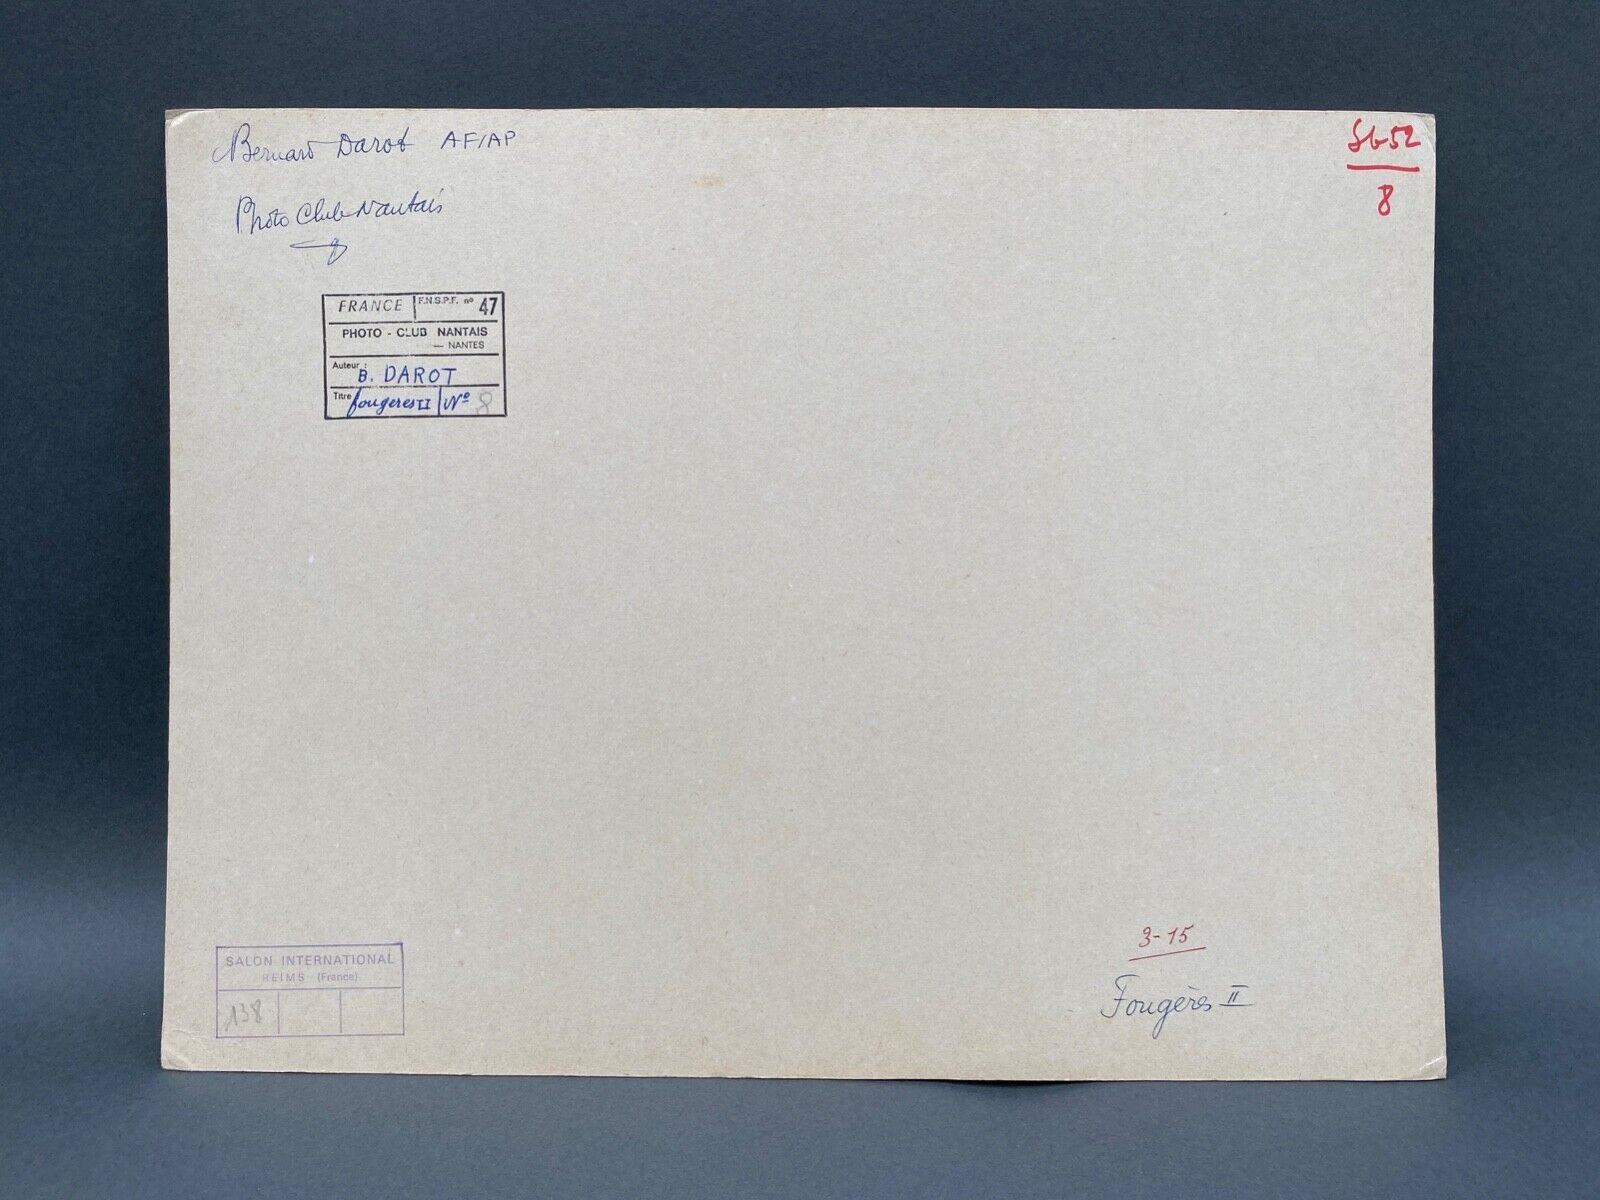 Bernard Darot AFIAP
Photo Club Nantais
8
FRANCE F.N.S.P.F. nº 47
PHOTO - CLUB NANTAIS
— NANTES
Auteur : B. DAROT
Titre fougeres II Nº 8
3-15
Fougères II
SALON INTERNATIONAL
REIMS (France)
138